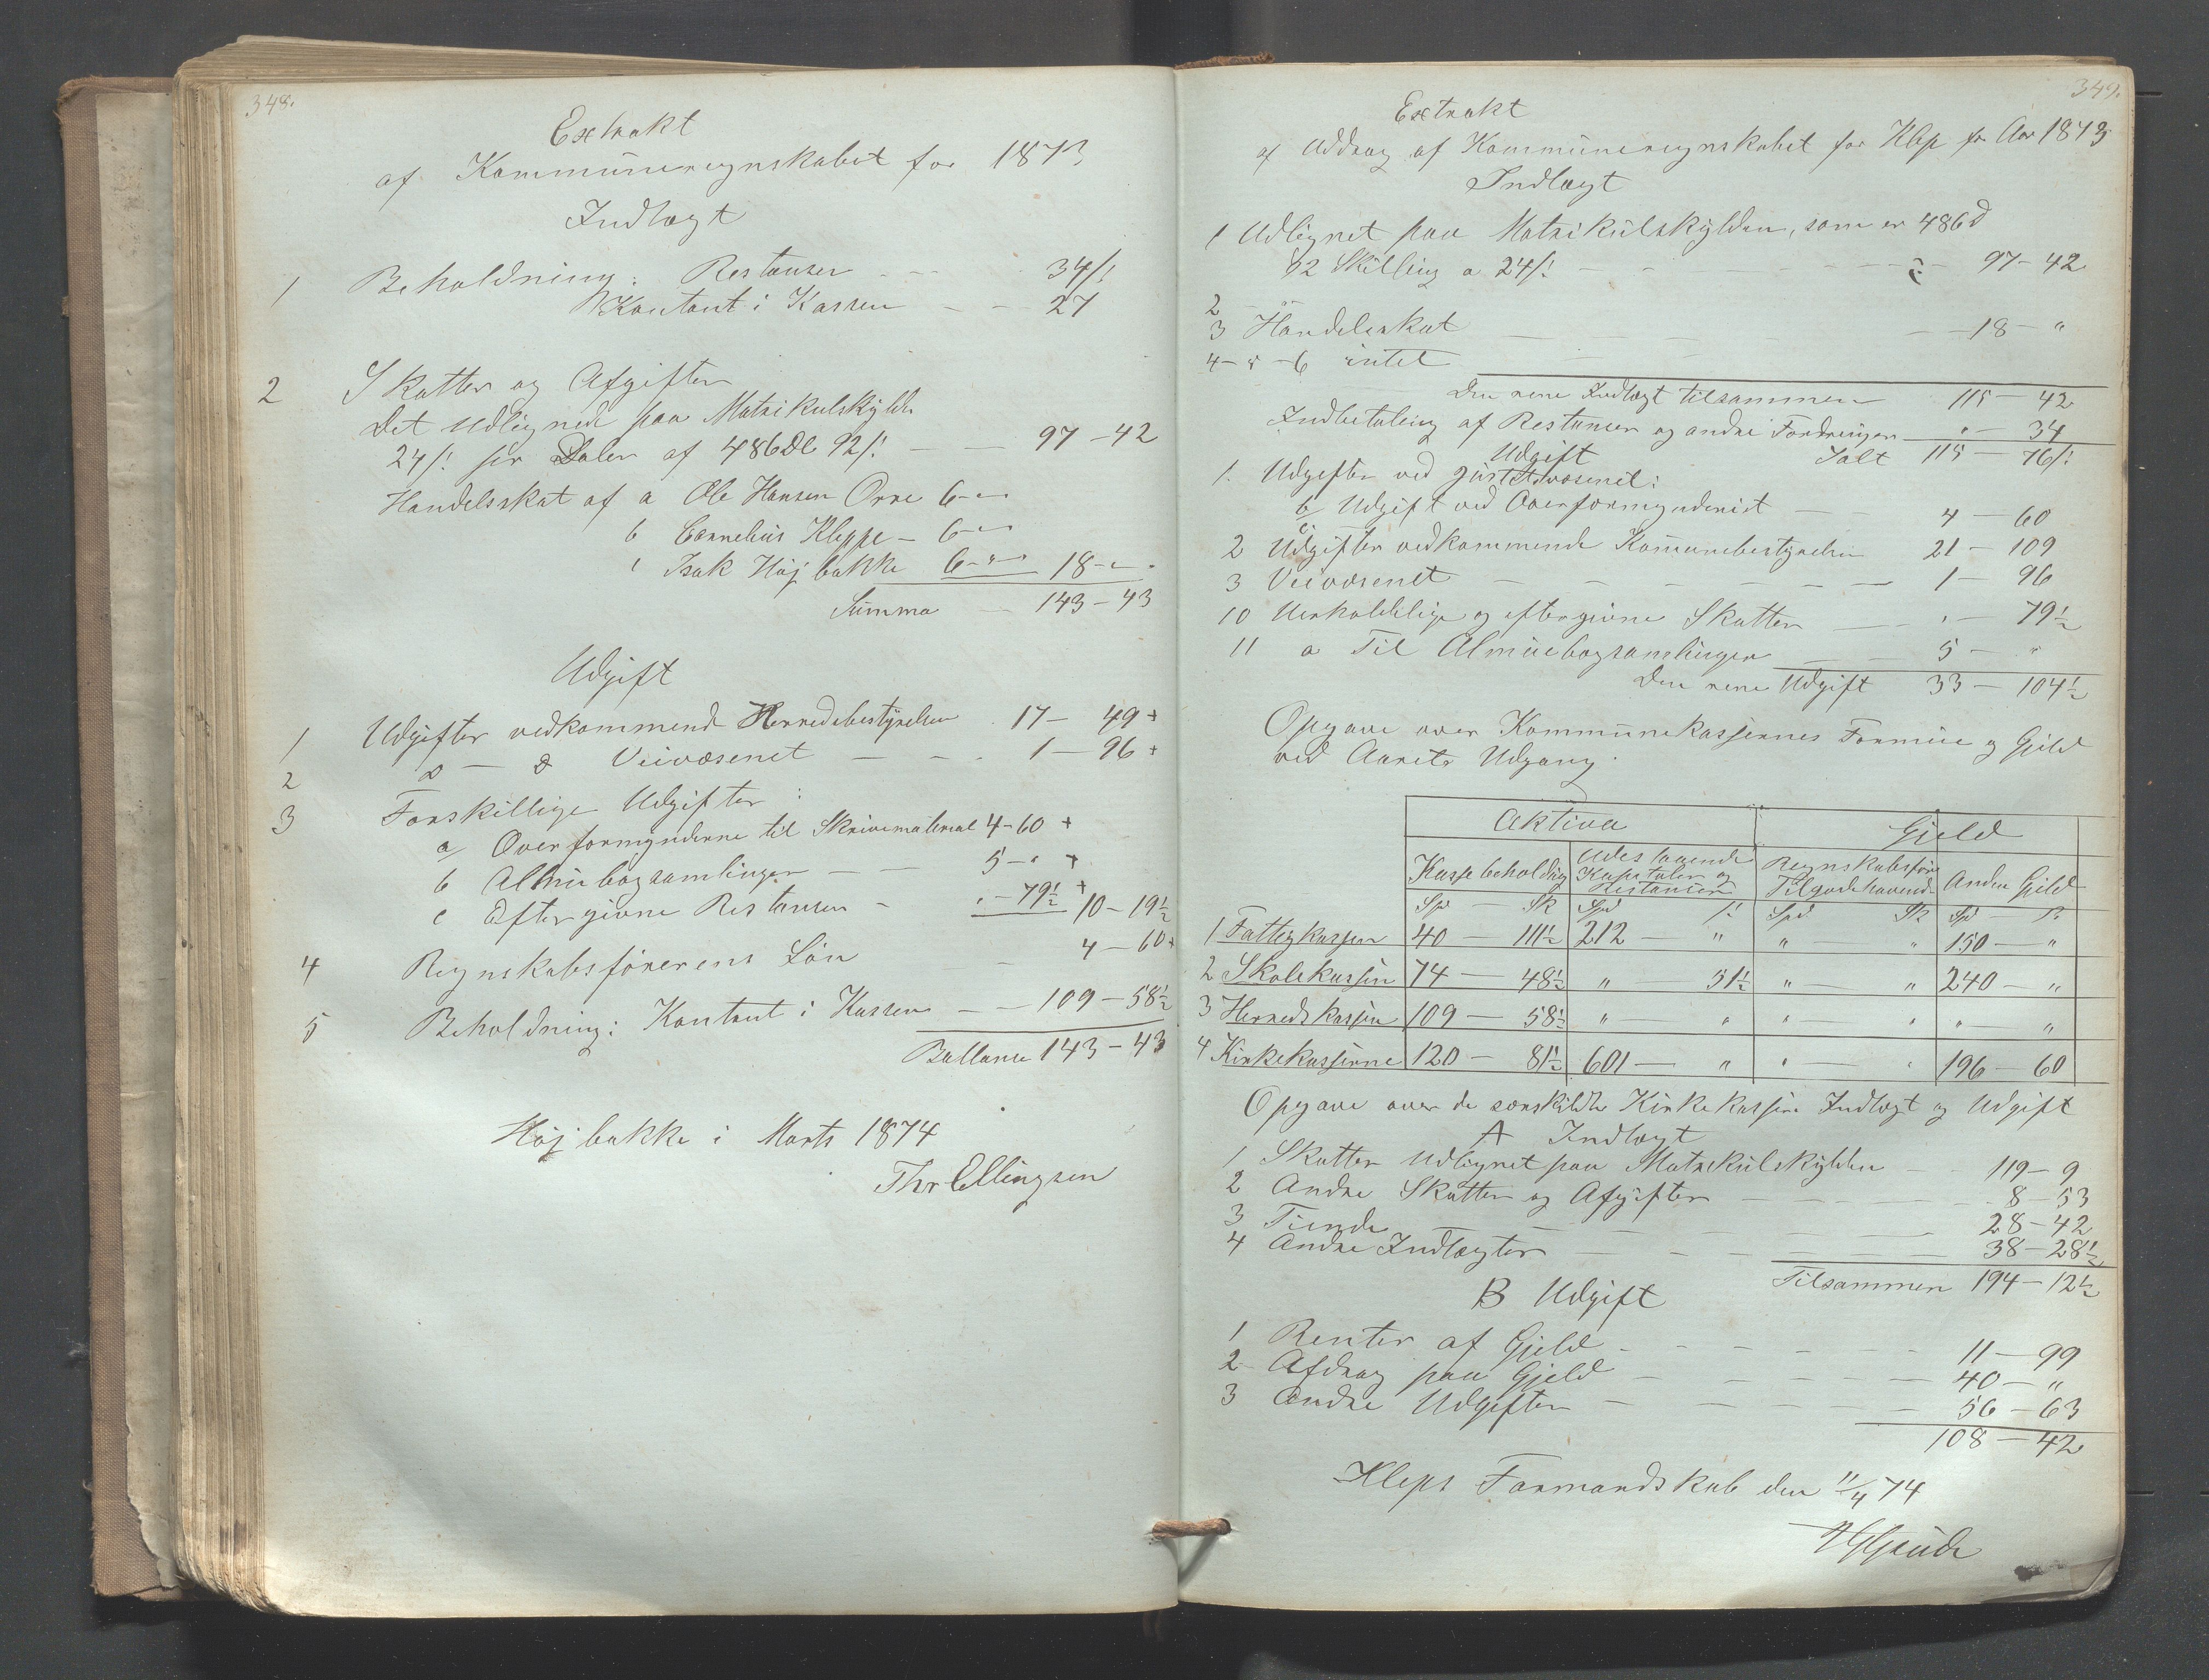 348.
Extrakt
af Kommuneregnskabet for 1873
Indtægt
1 Beholdning: Restanser - - 34/:
Kontant i Kassen - - 27
2 Skatter og Afgifter
Det udlignede paa Matrikulskylden
24/: pr Daler af 486 Dl 92/: - - 97 - 42
Handelsskat af a Ole Hansen Orre 6 - "
b Cornelius Kleppe - 6 - "
c Isak Højbakke 6 - " 18 - "
Summa - 143 - 43
Udgift
1 Udgifter vedkommend Herredsbestyrelsen 17 - 49 +
2 do - do Veivæsenet - - 1 - 96 +
3 Forskillige Udgifter:
a/ Overformynderne til Skrivemateriel 4 - 60 +
b Almuebogsamlingen - - 5 - " +
c Eftergivne Restanser - " - 79½ + 10 - 19½
4 Regnskabsførerens Løn - 4 - 60 +
5 Beholdning: Kontant i Kassen - - 109 - 58½
Ballanse 143 - 43
Højbakke i Marts 1874
Thr Ellingsen
349.
Extrakt
af Uddrag af Kommuneregnskabet for Klep for Aar 1873
Indtægt
1 Udlignet paa Matrikulskylden, som er 486 d
92 Skilling a 24/: - - - 97 - 42
2 - "
3 Handelsskat - - - 18 - "
4 - 5 - 6 intet
Den rene Indtægt tilsammen 115 - 42
Indbetaling af Restanser og andre Fordringer - " - 34
Udgift Ialt 115 - 76/:
1. Udgifter ved Justitsvæsenet:
b/ Udgift ved Overformynderiet - - 4 - 60
2 Udgifter vedkommende Komunebestyrelsen 21 - 109
3 Veivæsenet - - - - 1 - 96
10 Uerholdelige og eftergivne Skatter - - " - 79½
11 a Til Almuebogsamlingen - - 5 - "
Den rene Udgift 33 - 104½
Opgave over Kommunekassernes Formue og Gjeld
ved Aarets Udgang.
Aktiva Gjeld
Kassebeholdng Udestaaende Kapitaler og Restanser Regnskabsføre Tilgodehavend. Anden Gjeld
Spd - Sk Spd /: Spd. Sk Spd - /:
1 Fattigkassen 40 - 111½ 212 - " " - " 150 - "
2 Skolekassen 74 - 48½ " - 51½ " - " 240 - "
3 Herredskassen 109 - 58½ " - " " - " " - "
4 Kirkekasserne 120 - 81½ 601 - " " - " 196 - 60
Opgave over de særskildte Kirkekassers Indtægt og Udgift
A Indtægt
1 Skatter udlignet paa Matrikulskylden - 119 - 9
2 Andre Skatter og Afgifter - - - 8 - 53
3 Tiende - - - 28 - 42
4 Andre Indtægter - - - 38 - 28½
Tilsammen 194 - 12½
B Udgift
1 Renter af Gjeld - - - 11 - 99
2 Afdrag paa Gjeld - - - 40 - "
3 Andre Udgifter - - - 56 - 63
108 - 42
Kleps Formandskab den 11/4 74